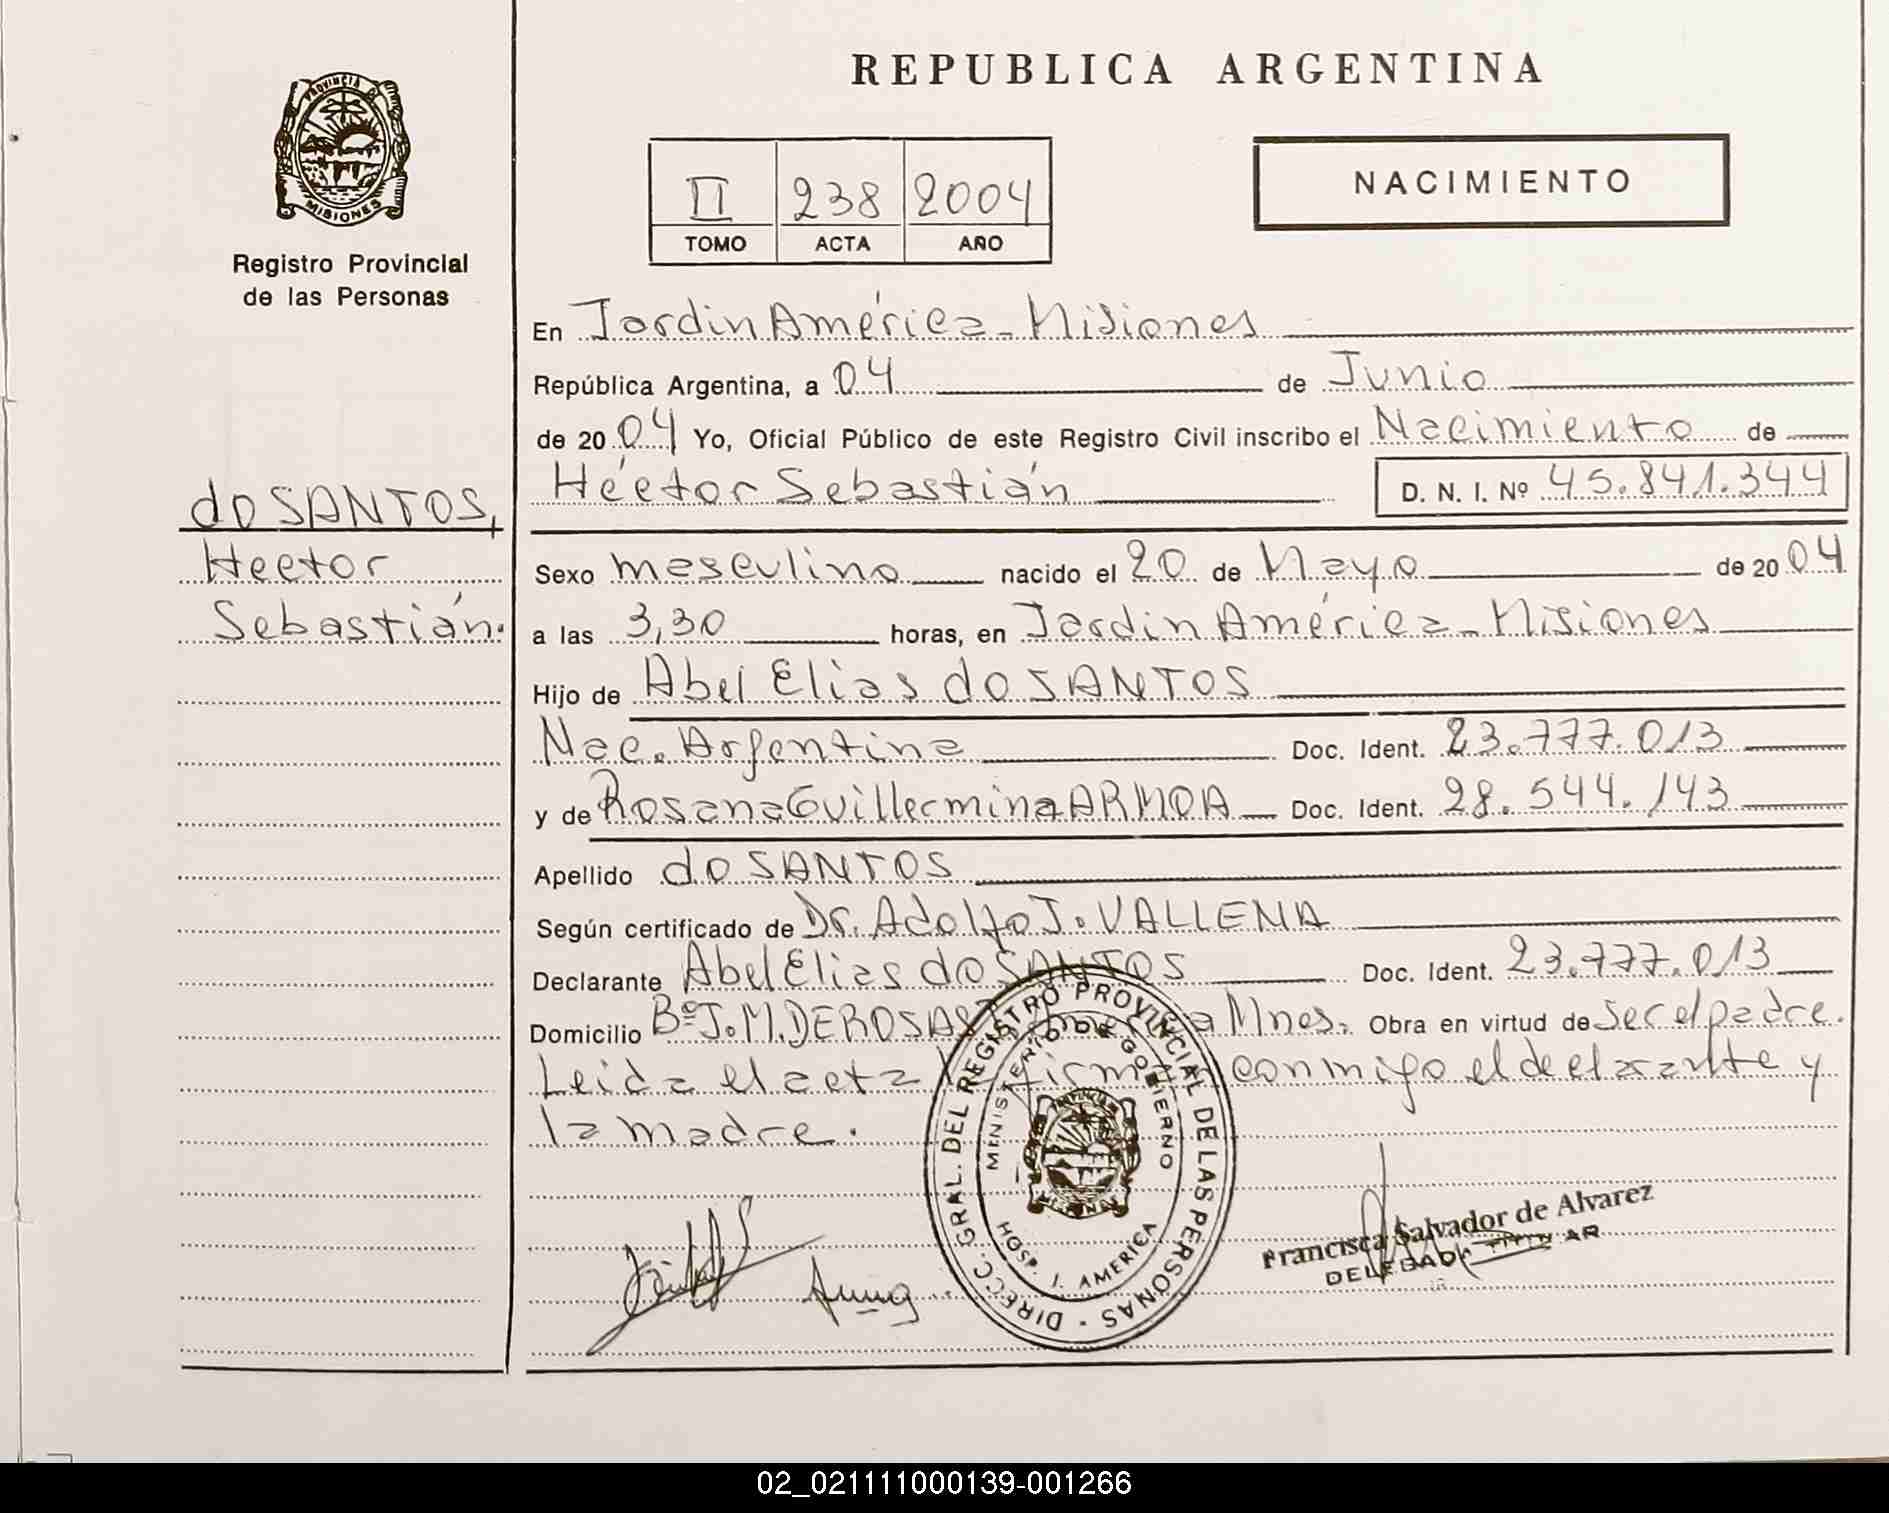 REPUBLICA ARGENTINA
PROVINCIA DE
MISIONES
Registro Provincial
de las Personas
II 238 2004
TOMO ACTA AÑO
NACIMIENTO
En Jardín América - Misiones
República Argentina, a 04 de Junio
de 2004 Yo, Oficial Público de este Registro Civil inscribo el Nacimiento de
Héctor Sebastián D. N. I. Nº 45.841.344
do SANTOS,
Hector
Sebastián.
Sexo masculino nacido el 20 de Mayo de 2004
a las 3,30 horas, en Jardín América - Misiones
Hijo de Abel Elias do SANTOS
Nac. Argentina Doc. Ident. 23.777.013
y de Rosana Guillermina ARMOA Doc. Ident. 28.544.143
Apellido do SANTOS
Según certificado de Dr. Adolfo J. VALLENA
Declarante Abel Elias do SANTOS Doc. Ident. 23.777.013
Domicilio Bº J.M. DE ROSAS América Mnes. Obra en virtud de ser el padre.
Leida el acta firma conmigo el declarante y
la madre.
DIRECC. GRAL. DEL REGISTRO PROVINCIAL DE LAS PERSONAS -
MINISTERIO DE GOBIERNO
HOSP. J. AMERICA
Francisca Salvador de Alvarez
DELEGADA TITULAR
02_021111000139-001266